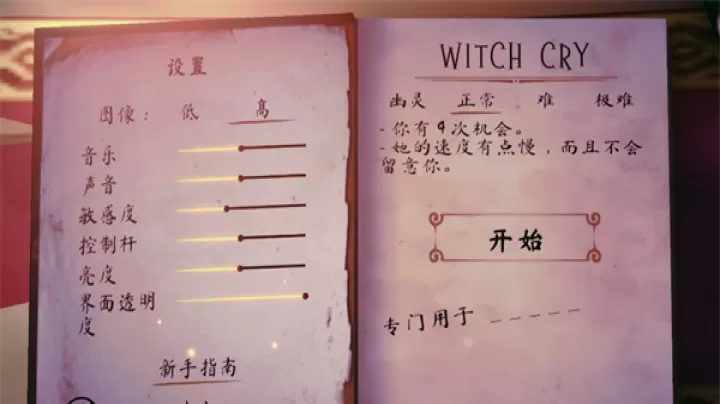 设置
图像： 低 高
音乐
声音
敏感度
控制杆
亮度
界面透明
度
新手指南
WITCH CRY
幽灵 正常 难 极难
- 你有4次机会。
- 她的速度有点慢，而且不会
留意你。
开始
专门用于 _ _ _ _ _